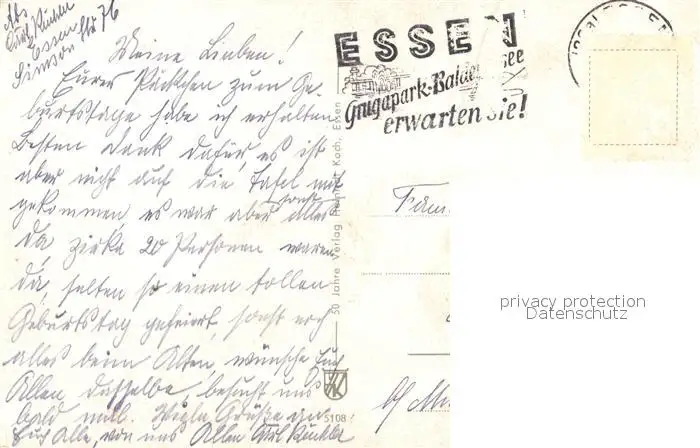 Abs
Essen
Simsonstr 76
Meine Lieben!
Eurer Päckchen zum Ge-
burtstage habe ich erhalten
besten Dank dafür, es ist
aber nicht auf die Tafel mit
gekommen, es war aber sonst alles
da, zirka 20 Personen waren
da, selten so einen tollen
Geburtstag gefeiert, sonst noch
alles beim Alten, wünsche Euch
Allen dasselbe, besucht uns
bald mal. Viele Grüße an
Euch Alle, von uns Allen Karl Künkler
ESSEN
Grugapark-Baldeneysee
erwarten Sie!
50 Jahre Verlag Reinhold Koch, Essen
5108
Fam
privacy protection
Datenschutz